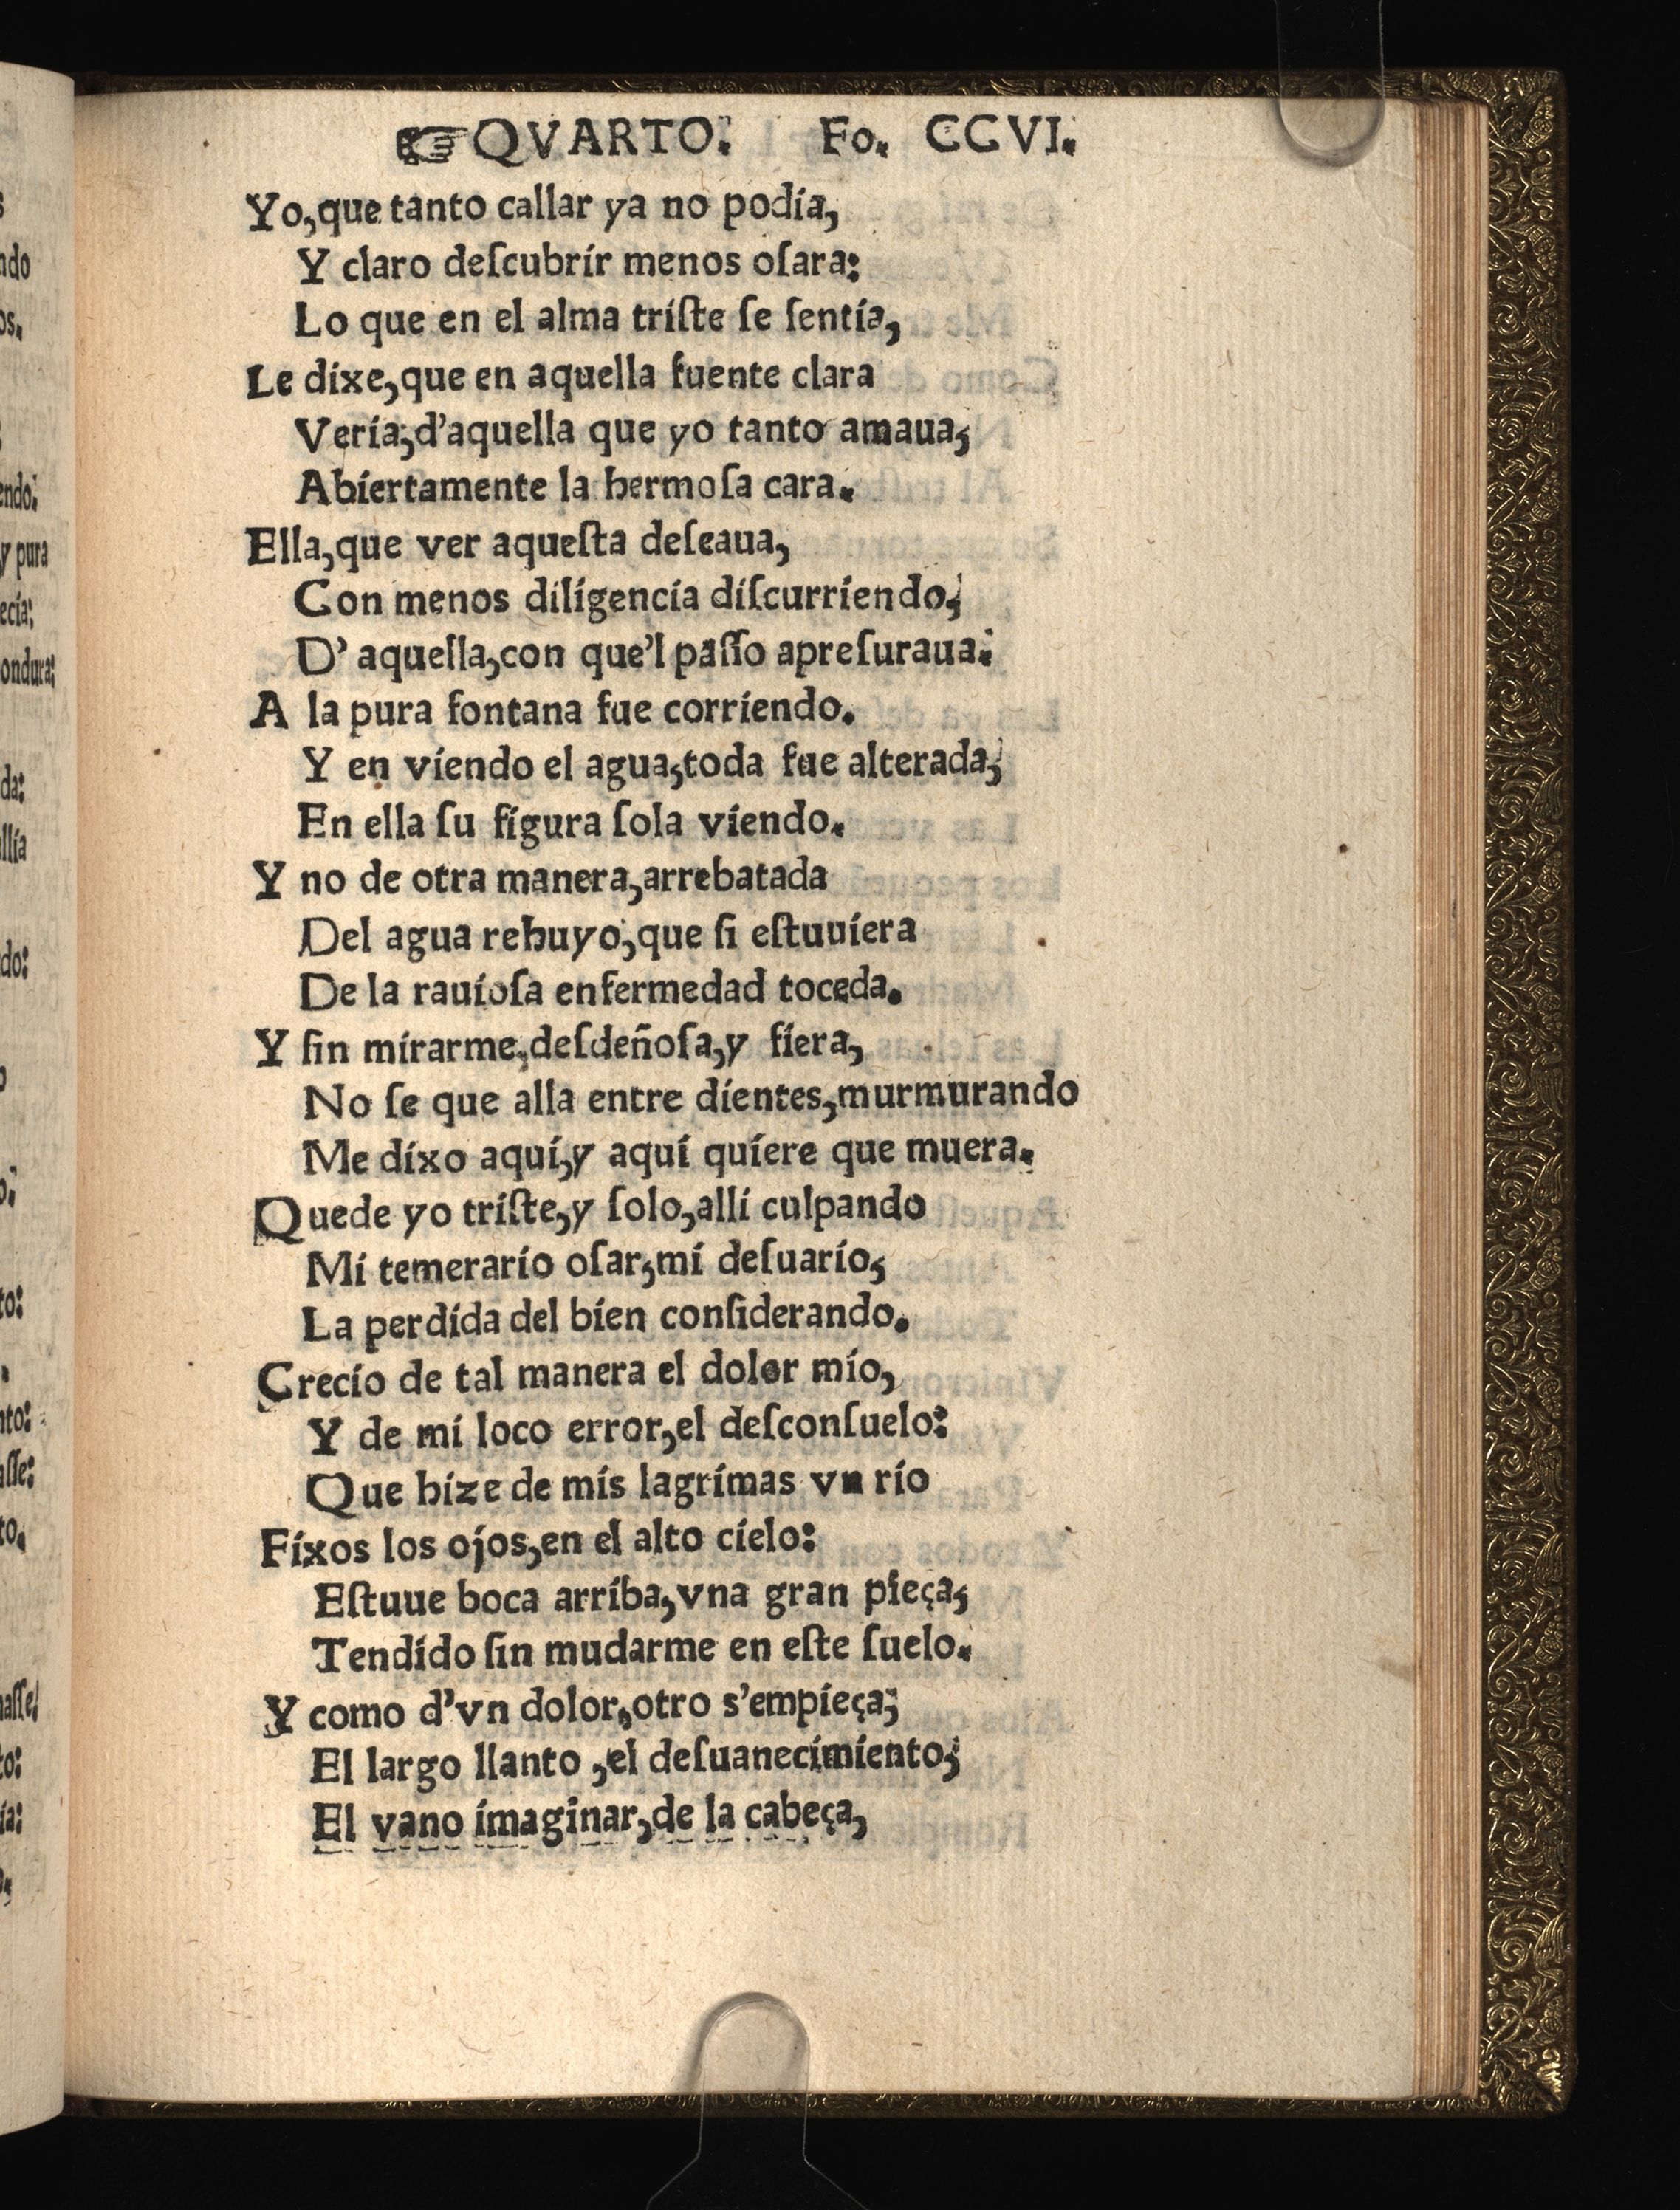 ☞QVARTO. Fo. CCVI.
Yo,que tanto callar ya no podía,
Y claro deſcubrír menos oſara:
Lo que en el alma tríſte ſe ſentía,
Le díxe,que en aquella fuente clara
Vería,d'aquella que yo tanto amaua,
Abíertamente la hermoſa cara.
Ella,que ver aqueſta deſeaua,
Con menos dílígencía díſcurríendo,
D' aquella,con que'l paſſo apreſuraua:
A la pura fontana fue corríendo.
Y en víendo el agua,toda fue alterada,
En ella ſu fígura ſola víendo.
Y no de otra manera,arrebatada
Del agua rehuyo,que ſi eſtuuíera
De la rauíoſa enfermedad toceda.
Y ſin mírarme,deſdeñoſa,y fíera,
No ſe que alla entre díentes,murmurando
Me díxo aquí,y aquí quíere que muera.
Quede yo tríſte,y ſolo,allí culpando
Mí temerarío oſar,mí deſuarío,
La perdída del bíen conſiderando.
Crecío de tal manera el dolor mío,
Y de mí loco error,el deſconſuelo:
Que híze de mís lagrímas vn río
Fíxos los ojos,en el alto cíelo:
Eſtuue boca arríba,vna gran píeça,
Tendído ſin mudarme en eſte ſuelo.
Y como d'vn dolor,otro s'empíeça;
El largo llanto ,el deſuanecímíento,
El vano ímagínar,de la cabeça,
ndo
os.
endo:
y pura
ecía:
ondura:
da:
llía
do:
to:
nto:
aſſe:
to,
naſſe,
to:
ía: